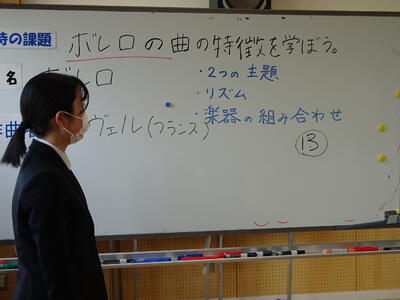 時の課題 ボレロの曲の特徴を学ぼう。
名 ボレロ
・2つの主題
・リズム
・楽器の組み合わせ
作曲 ヴェル(フランス)
13